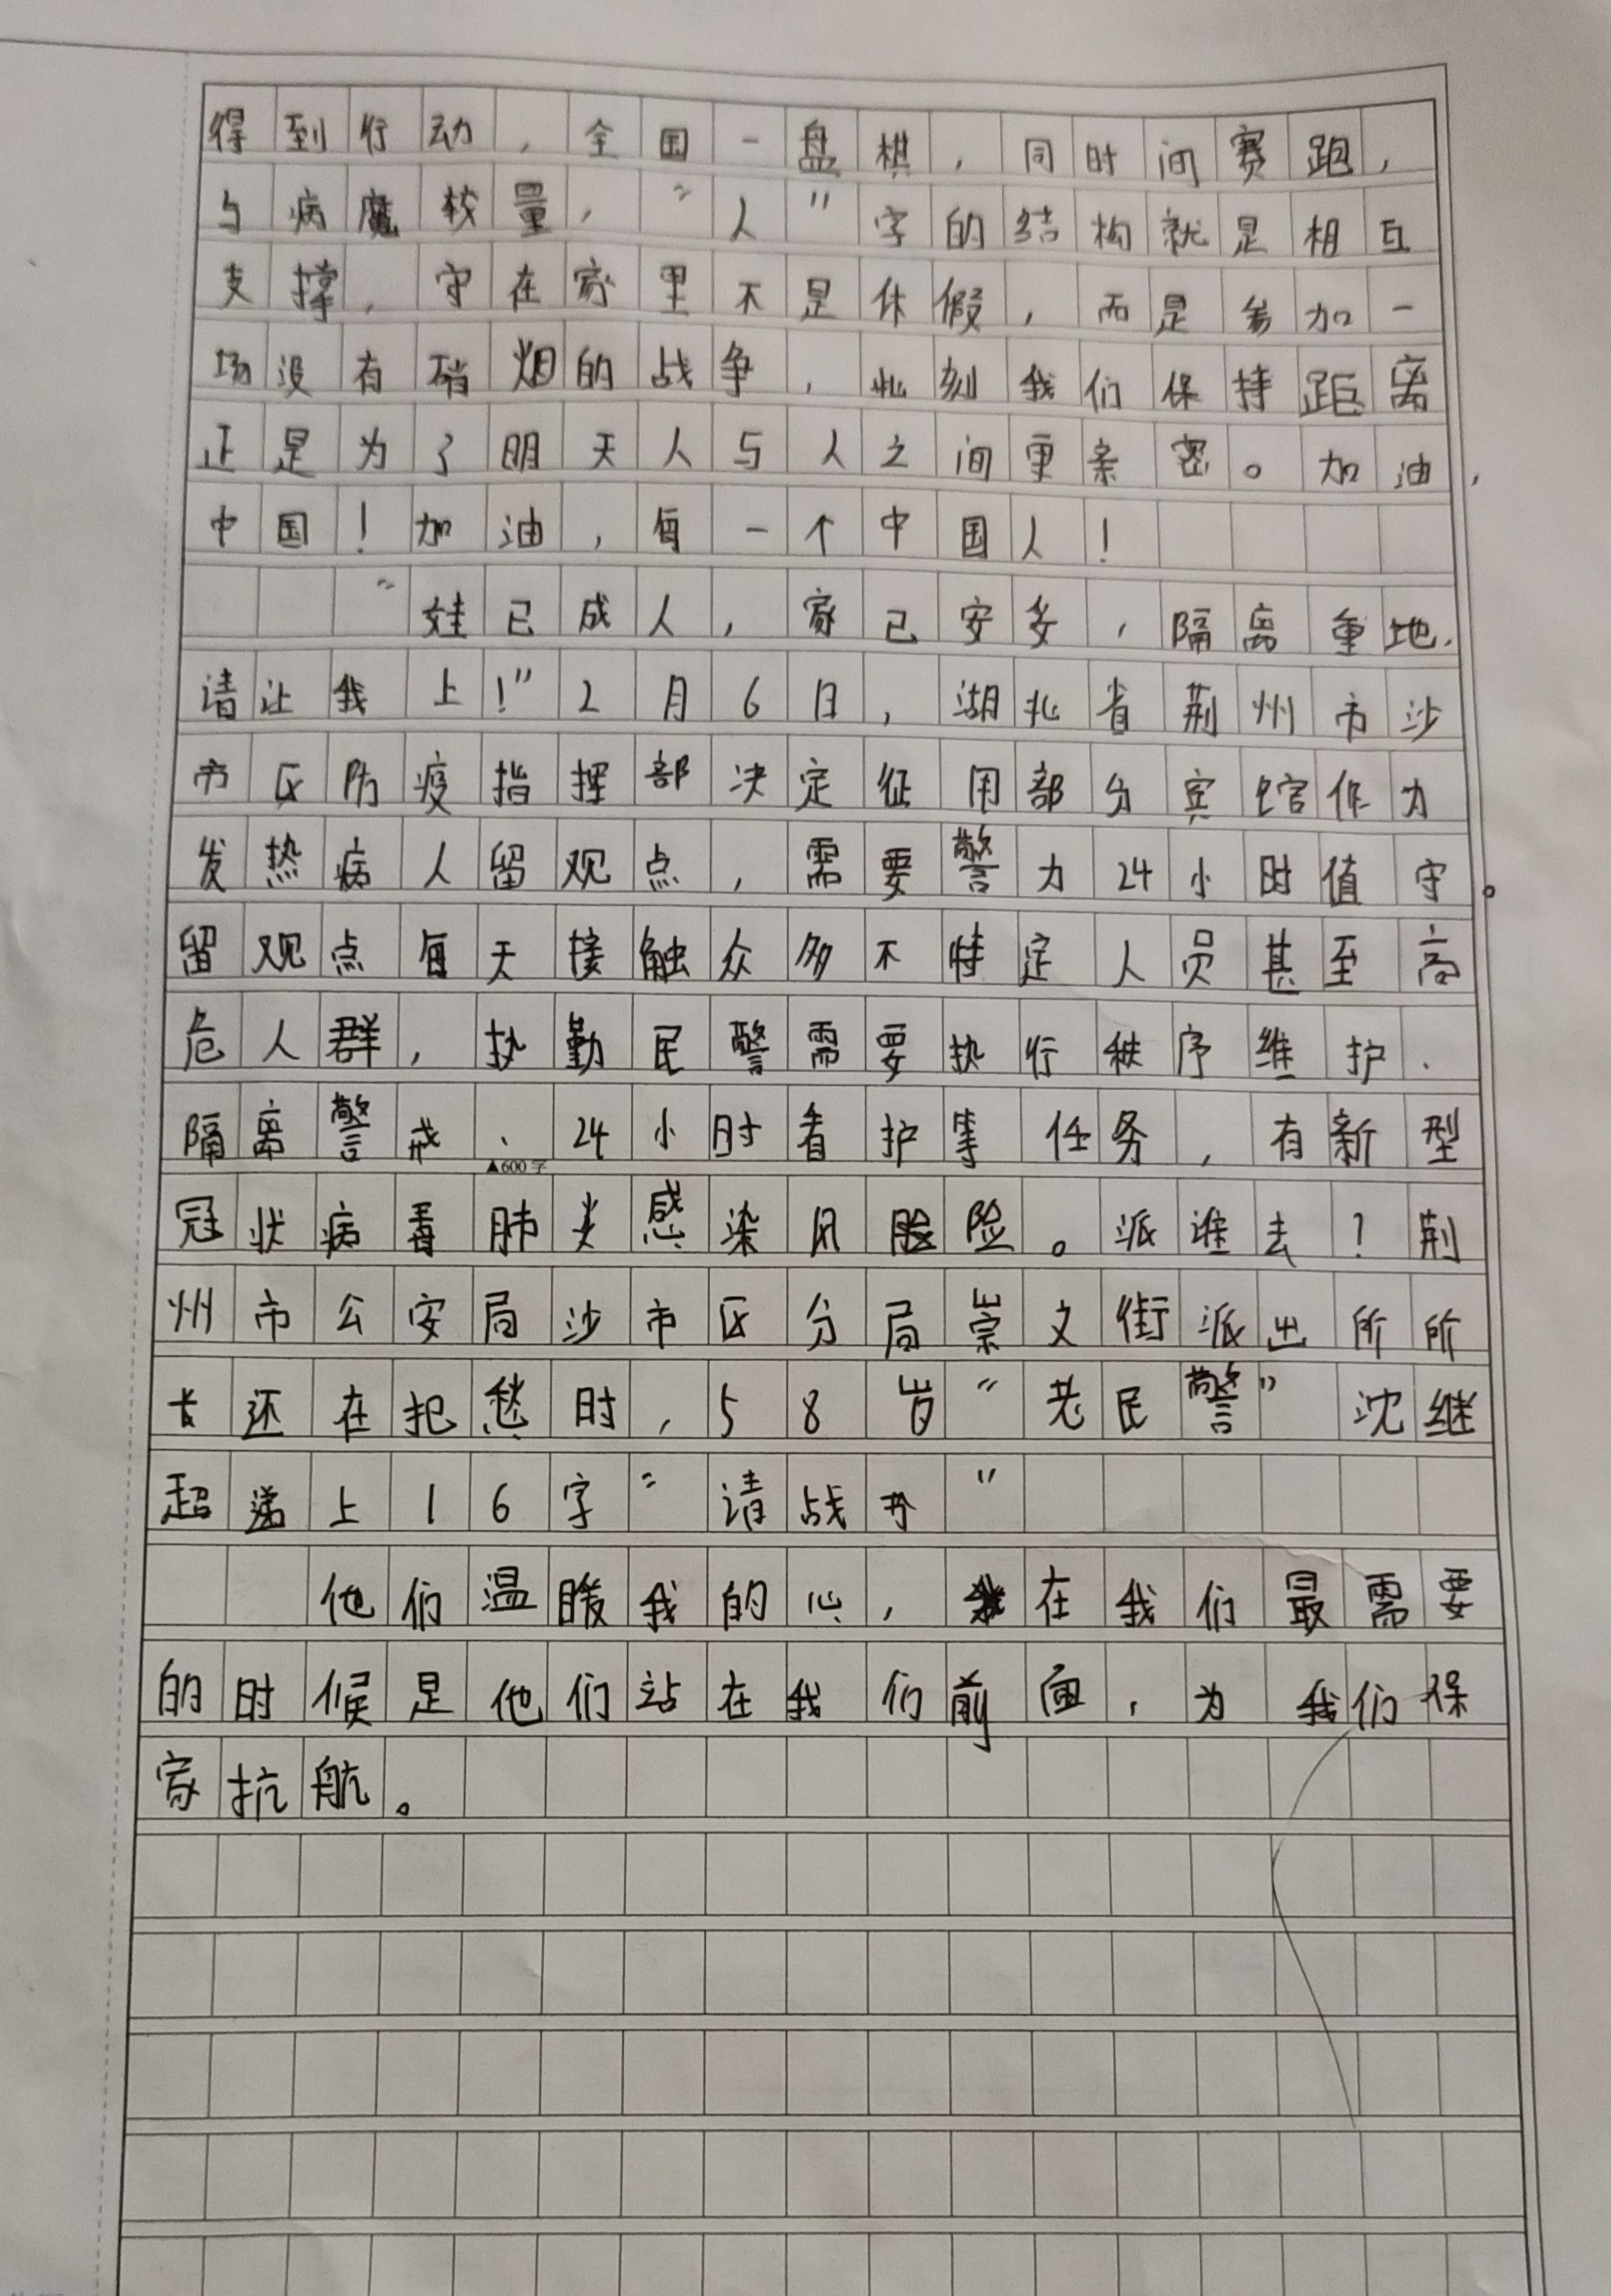 得到行动，全国一盘棋，同时间赛跑，
与病魔较量，“人”字的结构就是相互
支撑，守在家里不是休假，而是参加一
场没有硝烟的战争，此刻我们保持距离
正是为了明天人与人之间更亲密。加油，
中国！加油，每一个中国人！
“娃已成人，家已安多，隔离重地.
请让我上！”2月6日，湖北省荆州市沙
市区防疫指挥部决定征用部分宾馆作为
发热病人留观点，需要警力24小时值守。
留观点每天接触众多不特定人员甚至高
危人群，执勤民警需要执行秩序维护、
隔离警戒、24小时看护等任务，有新型
▲600字
冠状病毒肺炎感染风险。派谁去？荆
州市公安局沙市区分局崇文街派出所所
长还在犯愁时，58岁“老民警”沈继
超递上16字“请战书”
他们温暖我的心，在我们最需要
的时候是他们站在我们前面，为我们保
家抗航。